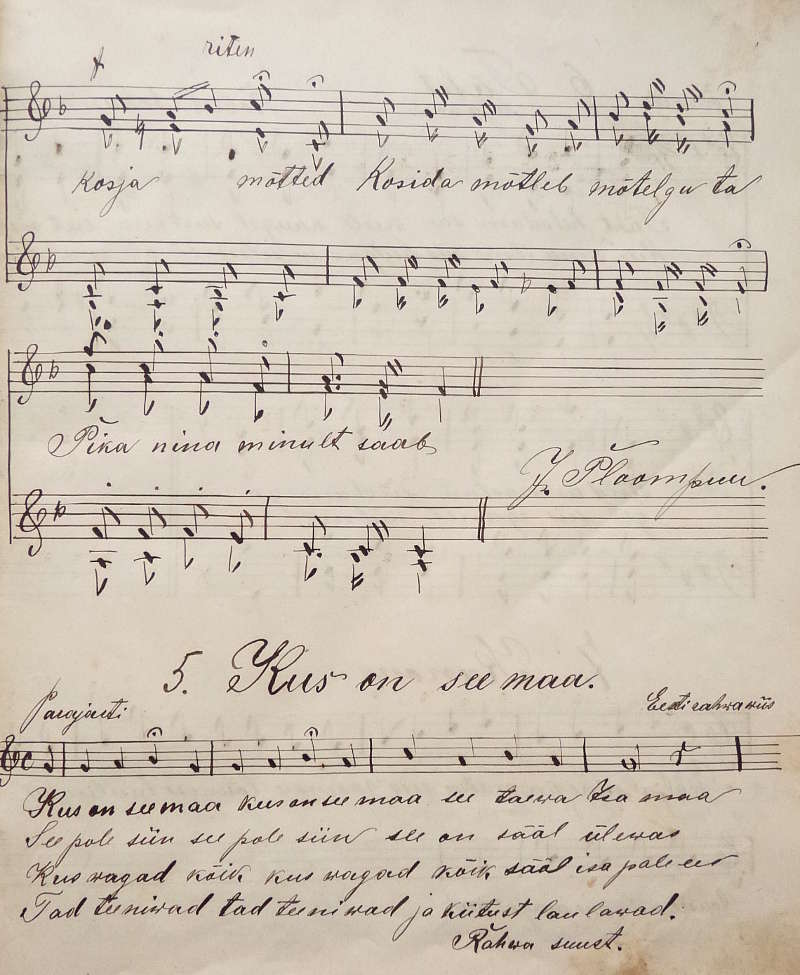 riten
kosja mõtted Kosida mõtleb mõtelgu ta
Pika nina minult saab
J. Ploompuu.
5. Kus on see maa.
Parajasti
Eesti rahwawiis
Kus on see maa kus on see maa see taewa Isa maa
See pole siin see pole siin see on sääl ülewas
Kus wagad kõik kus wagad kõik sääl isa palees
Tad teeniwad tad teeniwad ja kiitust laulawad.
Rahwa suust.